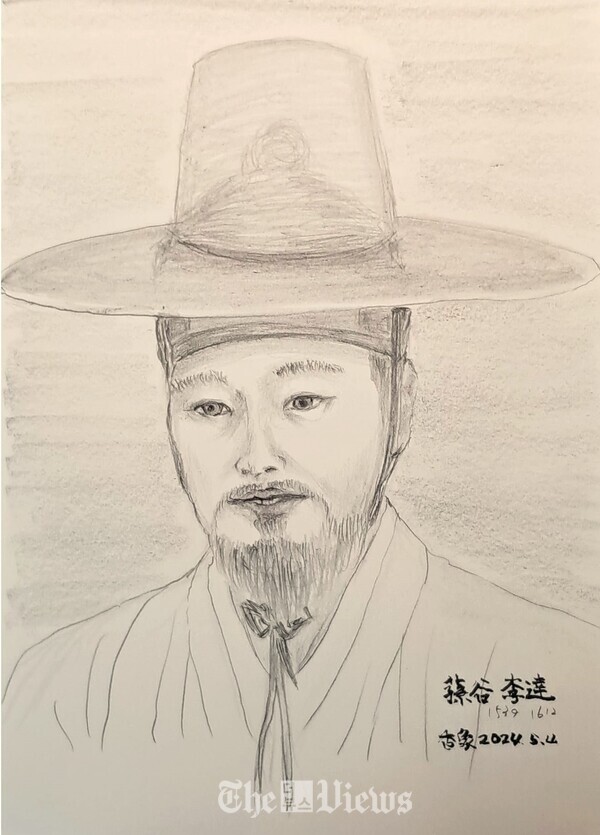 蓀谷 李達
1539 1612
香象 2024. 5. 4
The 더뷰스 Views